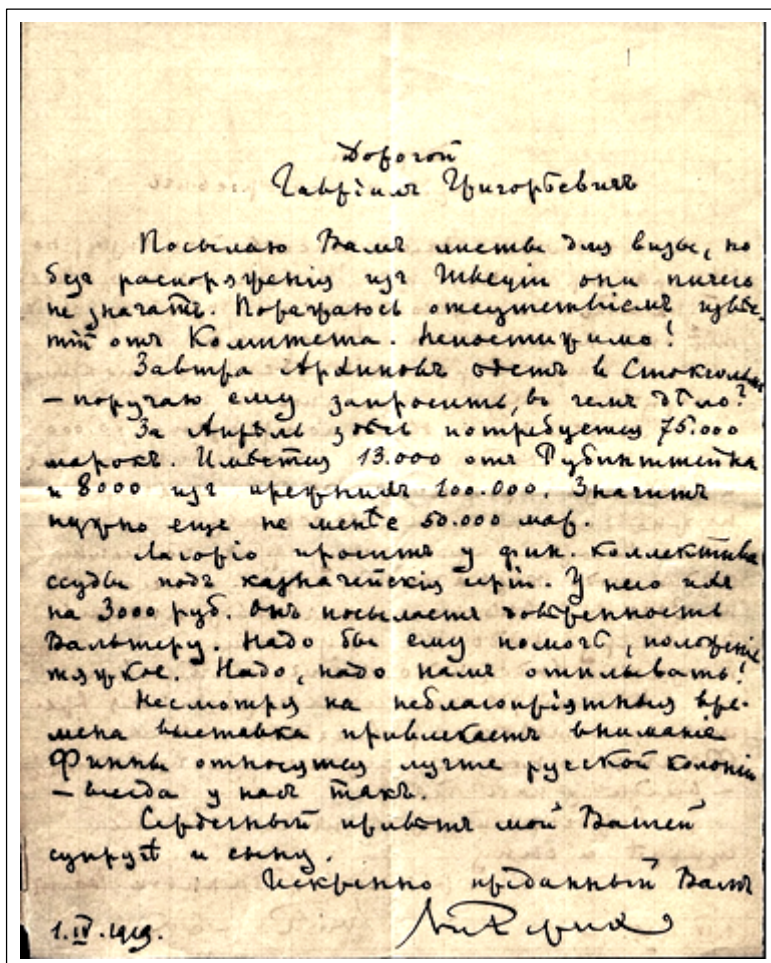 Дорогой
Гавріилъ Григорьевичъ
Посылаю Вамъ листы для визы, но
безъ распоряженія изъ Швеціи они ничего
не значатъ. Поражаюсь отсутствіемъ извѣс-
тій отъ Комитета. Непостижимо!
Завтра ѣдетъ в Стокгольмъ
– поручаю ему запросить, въ чемъ дѣло?
За Апрѣль здѣсь потребуется 75.000
марокъ. Имѣется 13.000 отъ Рубинштейна
и 8000 изъ прежнихъ 100.000. Значитъ
нужно еще не менѣе 50.000 мар.
Лагоріо проситъ у фин. коллектива
ссуды подъ казначейскія серіи. У него ихъ
на 3000 руб. Онъ посылаетъ довѣренность
Вальтеру. Надо бы ему помочь, положеніе
тяжкое. Надо, надо намъ отплывать!
Несмотря на неблагопріятныя вре-
мена выставка привлекаетъ вниманіе
Финны относятся лучше русской колоніи
– всегда у насъ такъ.
Сердечный привѣтъ мой Вашей
супругѣ и сыну.
Искренно преданный Вамъ
1.IV.1919. Н Рерих